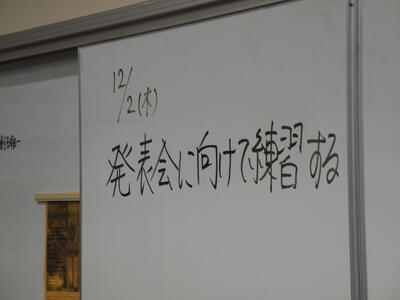 12/2(木)
発表会に向けて練習する